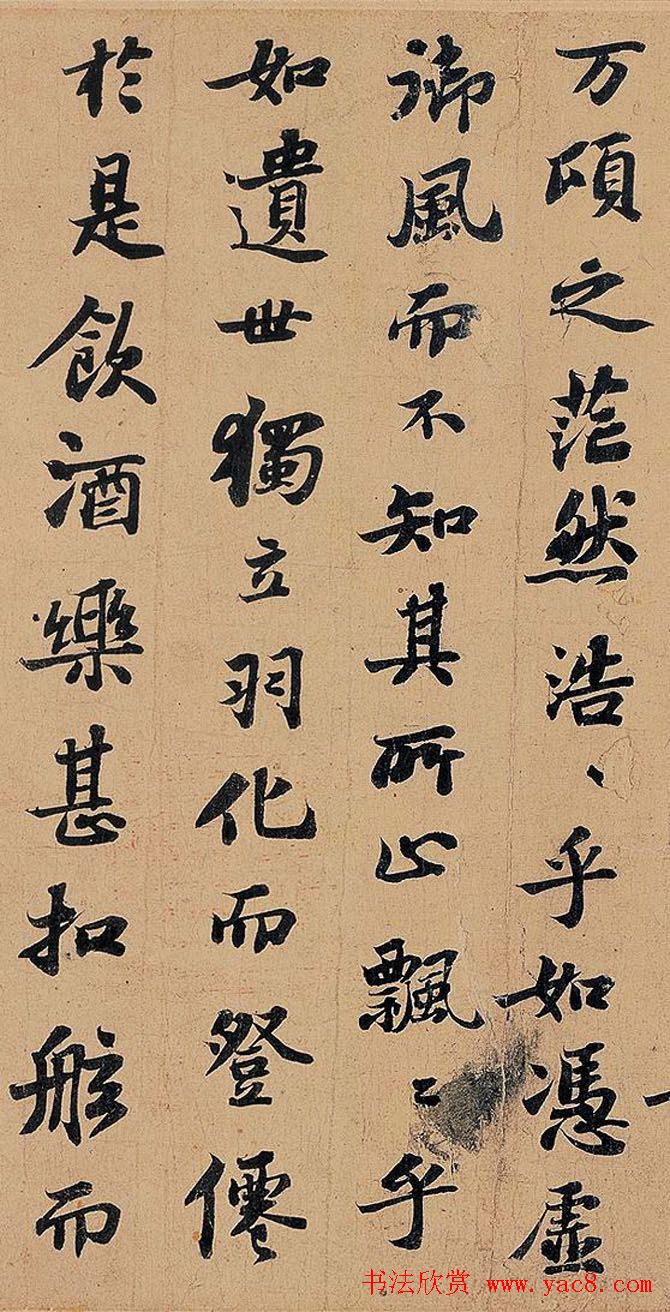 万頃之茫然浩、乎如憑虛
御風而不知其所止飄〻乎
如遺世獨立羽化而登僊
於是飲酒樂甚扣舷而
书法欣赏 www.yac8.com